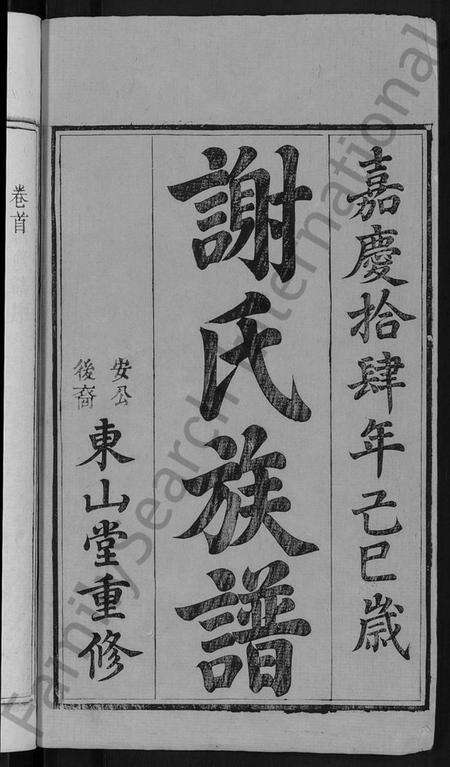 嘉慶拾肆年己巳歲
謝氏族譜
安公
後裔
東山堂重修
卷首
FamilySearch International